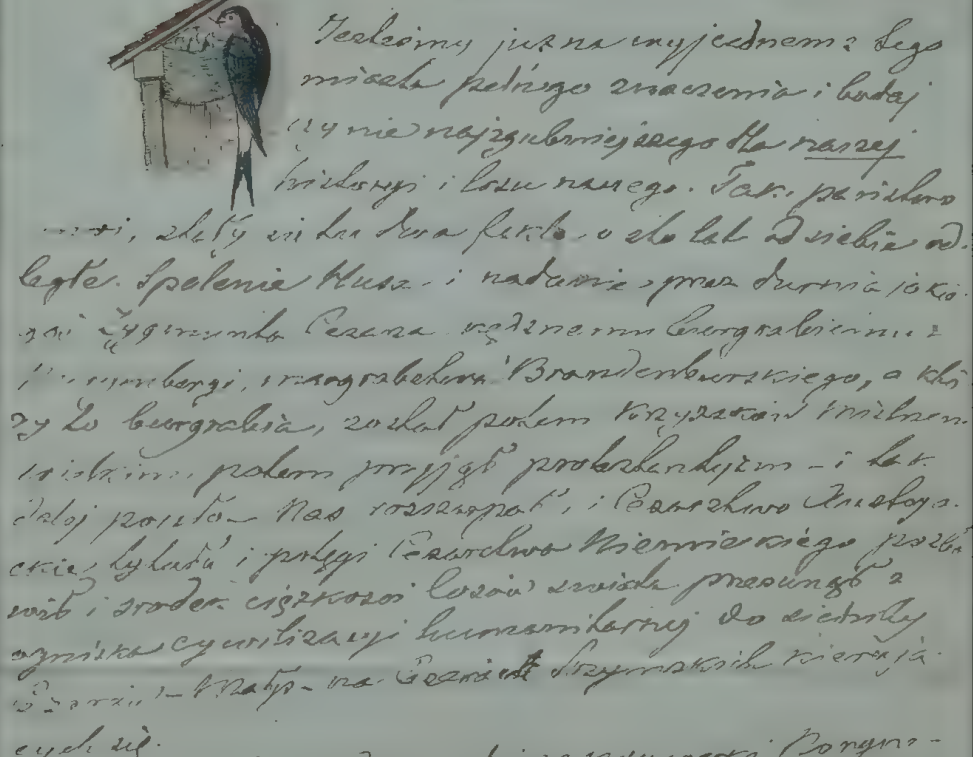 Jesteśmy już na wyjezdnem z tego
miasta pełnego znaczenia i bodaj
czy nie najzgubniejszego dla naszej
historyi i losu naszego. Tak, państwo
moi, zbiły się tu dwa fakta o sto lat od siebie od-
ległe. Spalenie Husa i nadanie przez durnia jakie-
goś Zygmunta Cezara nędznemu burgrabiemu z
margrabstwa Brandenburskiego, a któ-
ry to burgrabia, został potem Krzyżaków mistrzem
potem przyjął protestantyzm – i tak
dalej poszło – Nas rozszarpał, i Cesarstwo Austrya-
ckie tytułu i potęgi Cesarstwa Niemieckiego pozba-
wił i środek ciężkości losów świata przesunął z
ogniska cywilizacyi humanitarnej do siedziby
na
cych się.